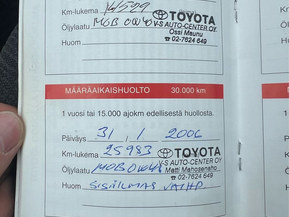 Km-lukema 14599 TOYOTA
Öljylaatu MOB 0W40 V-S AUTO-CENTER OY
Ossi Maunu
Huom ☎ 02-7624 649
MÄÄRÄAIKAISHUOLTO 30.000 km
1 vuosi tai 15.000 ajokm edellisestä huollosta.
Päiväys 31 / 1 2006
Km-lukema 25983 TOYOTA
Öljylaatu MOB 0W40 V-S AUTO-CENTER OY
Matti Mahosenaho
☎ 02-7624 649
Huom SISÄILMAS VAIHD